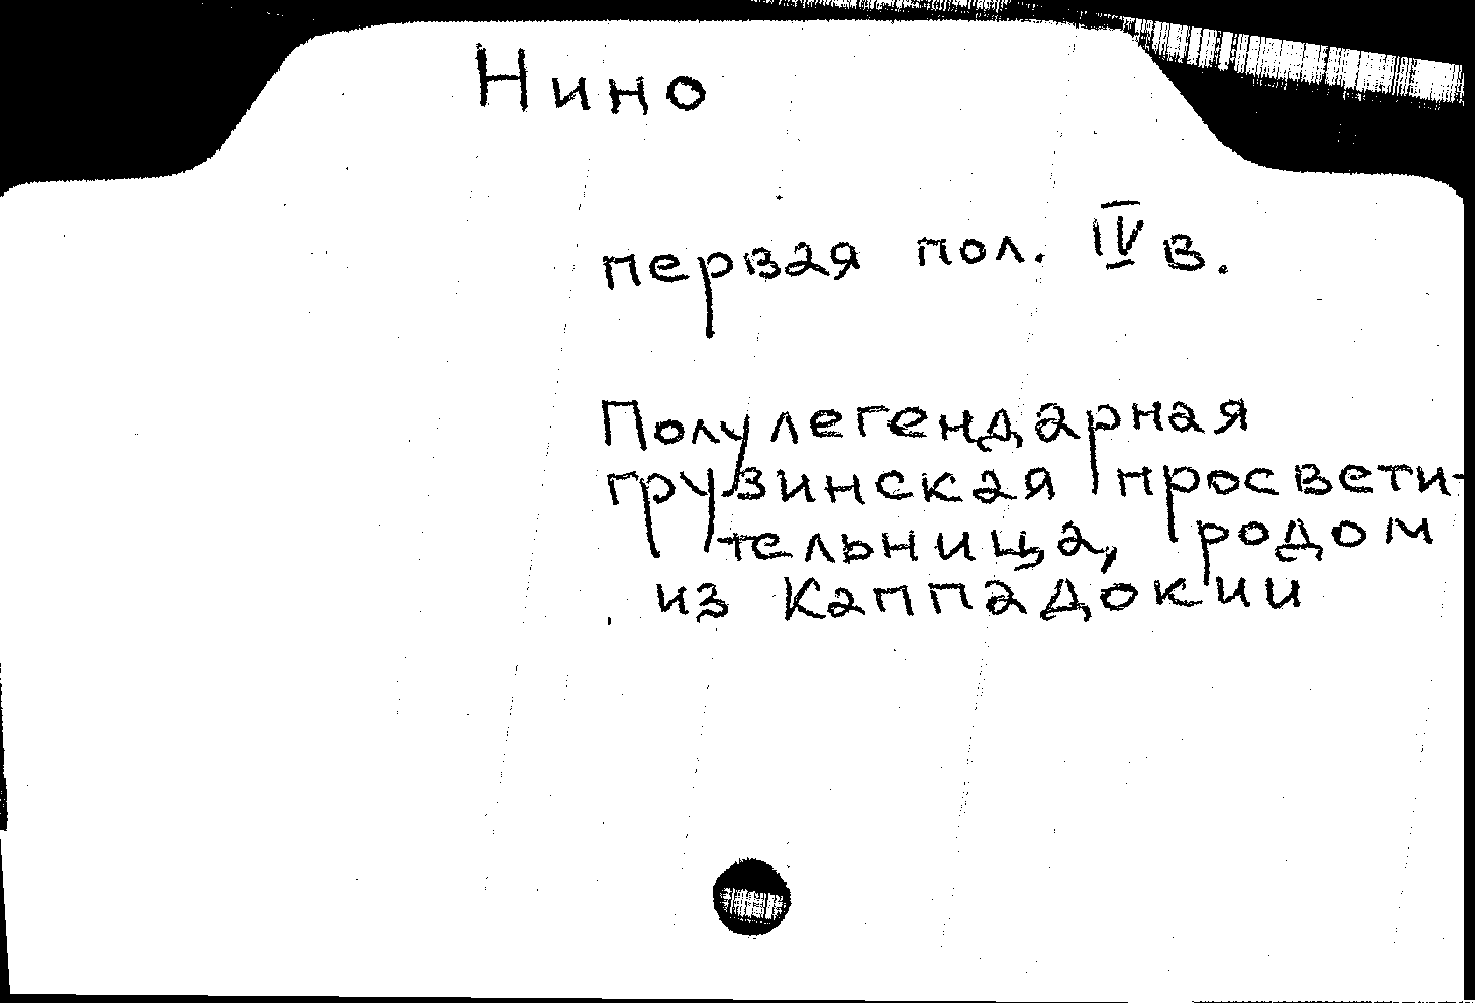 Нино
первая пол. IV в.
Полулегендарная
грузинская просвети-
тельница, родом
из Каппадокии